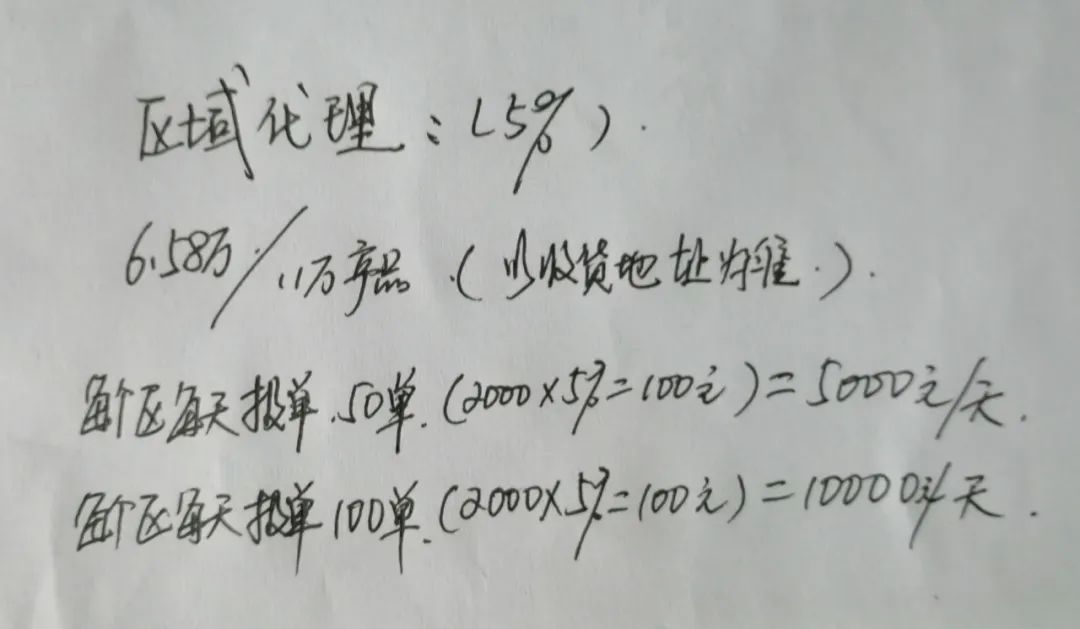 区域代理：(5%).
6.58万/11万产品.(以收货地址为准.).
每个区每天报单.50单.(2000×5%=100元)=5000元/天.
每个区每天报单100单.(2000×5%=100元)=10000元/天.